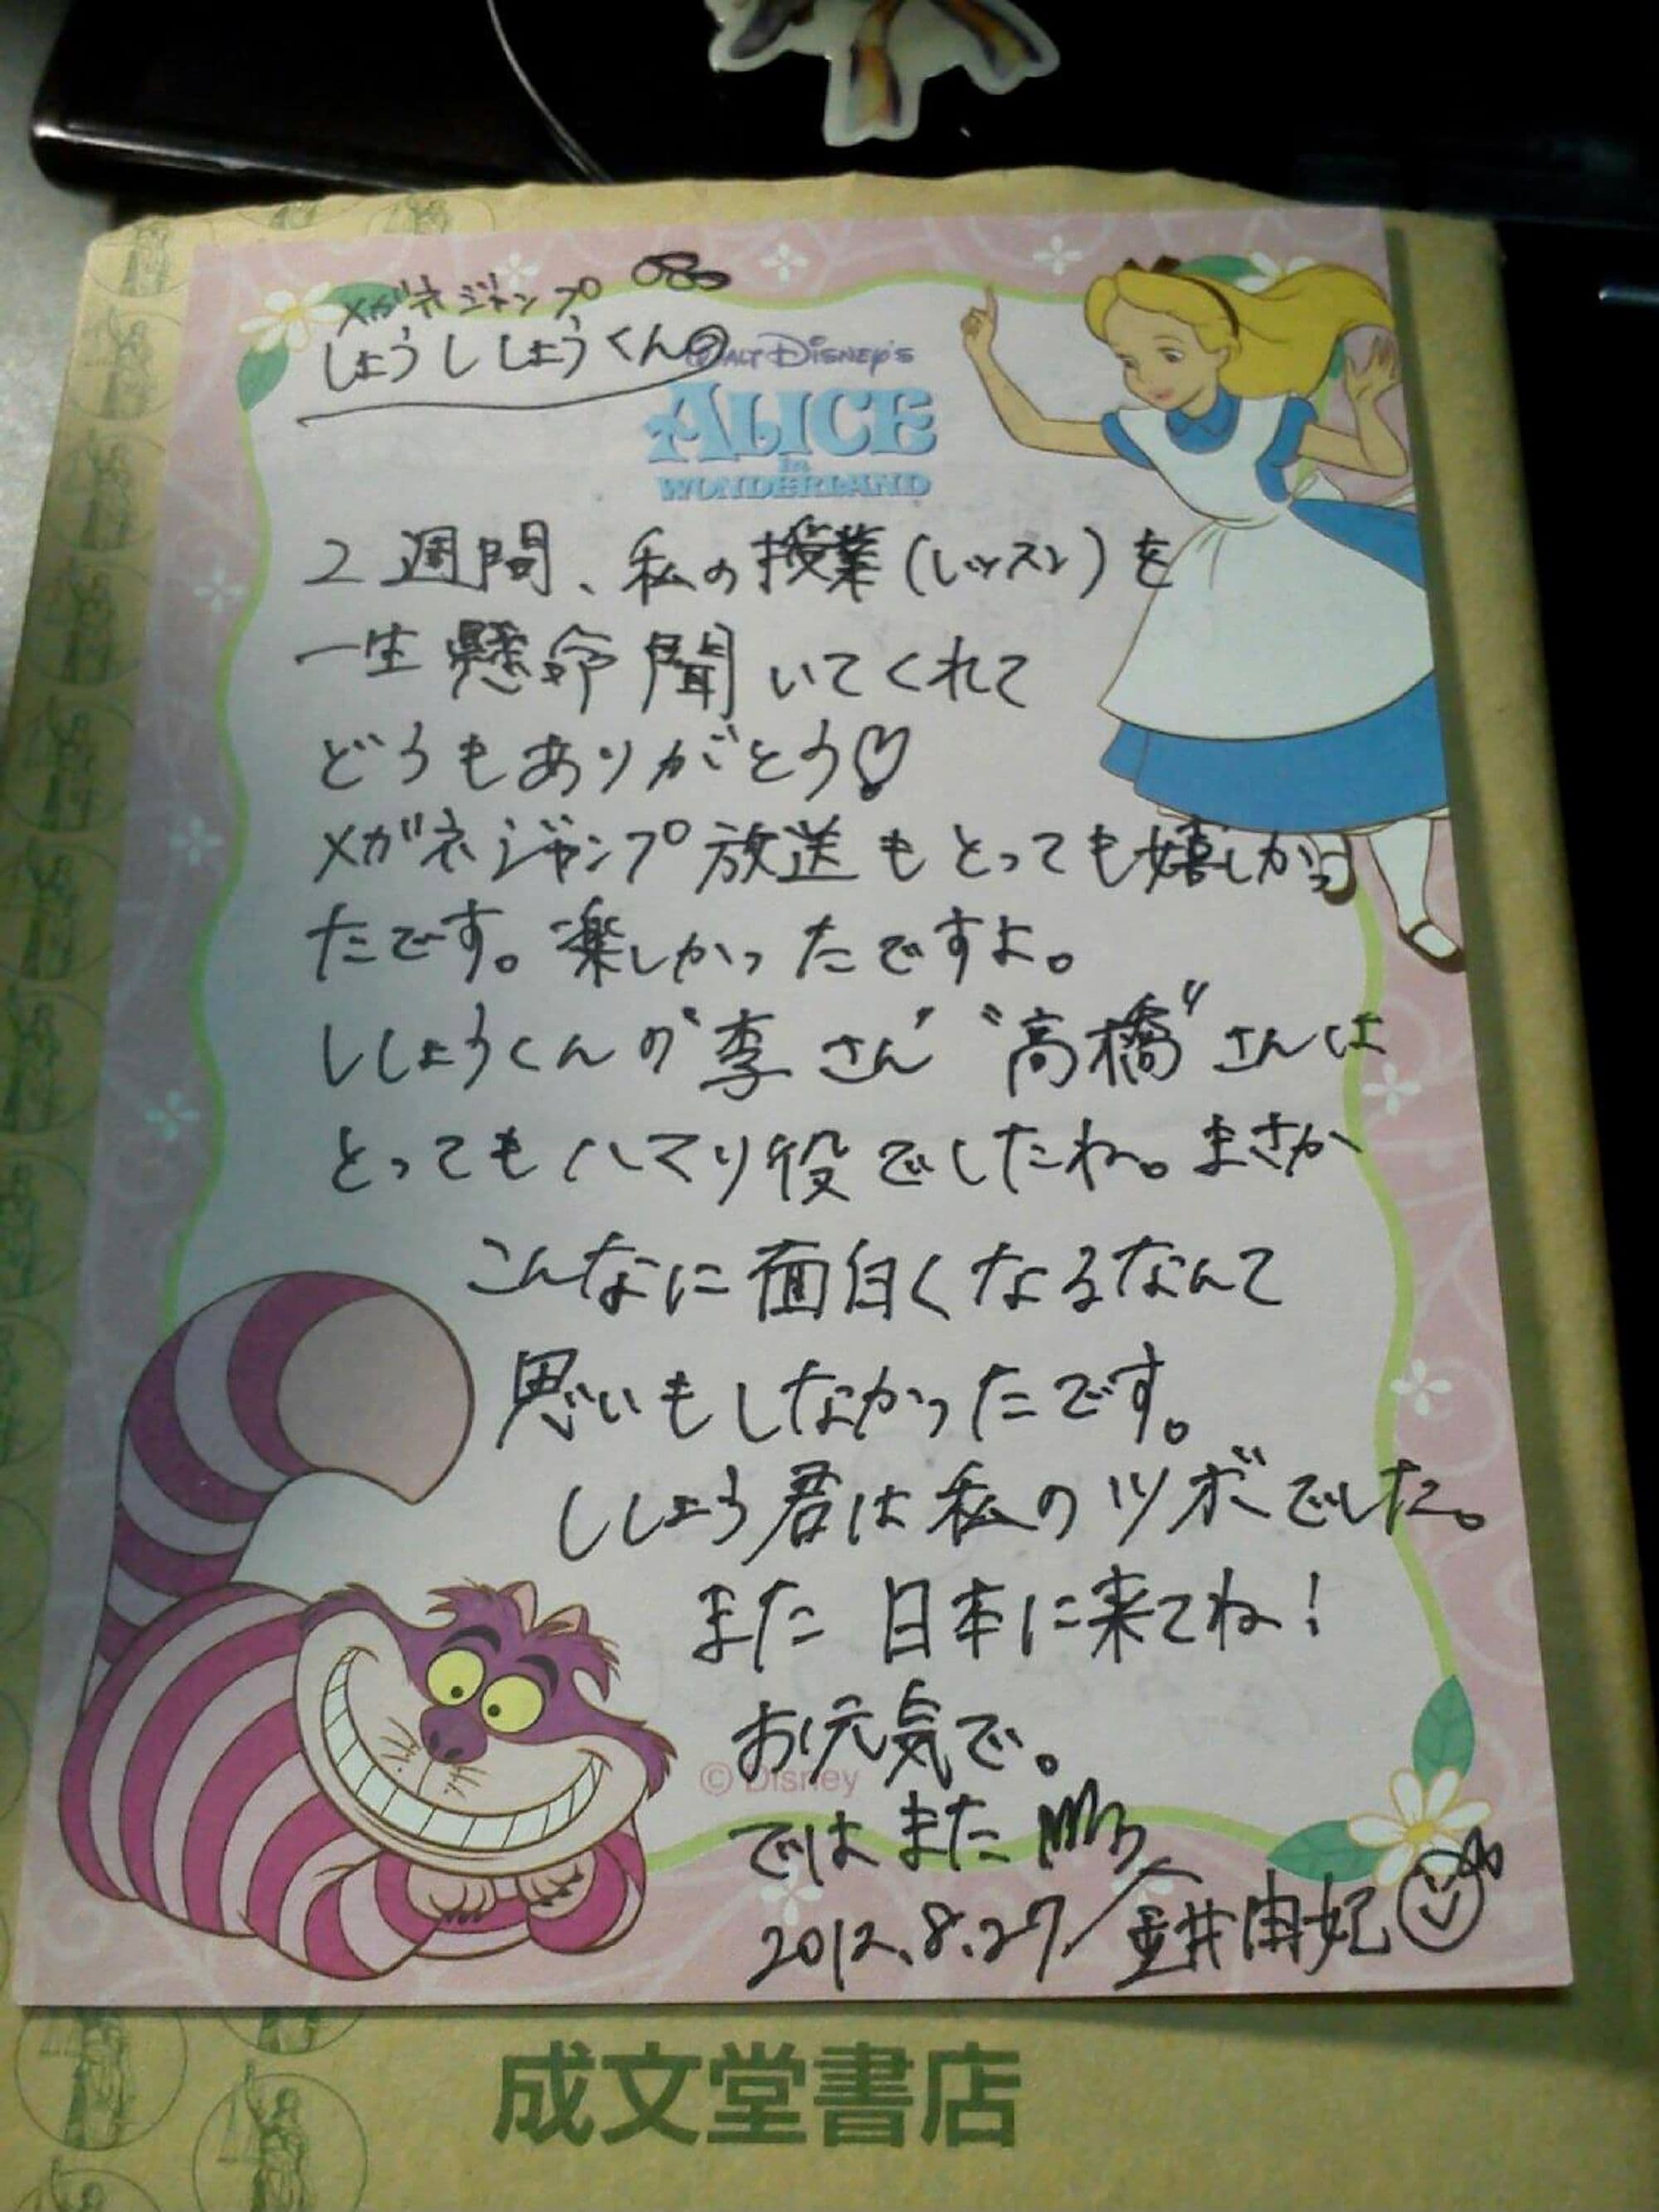 メガネジャンプ
しょうししょうくんの
WALT DISNEY'S
ALICE
in
WONDERLAND
2週間、私の授業(レッスン)を
一生懸命聞いてくれて
どうもありがとう♡
メガネジャンプ放送もとっても嬉しかっ
たです。楽しかったですよ。
ししょうくんの"李さん" "高橋"さんは
とってもハマり役でしたね。まさか
こんなに面白くなるなんて
思いもしなかったです。
ししょう君は私のツボでした。
また日本に来てね!
お元気で。
© Disney
ではまた
2012.8.27/金井由妃
成文堂書店